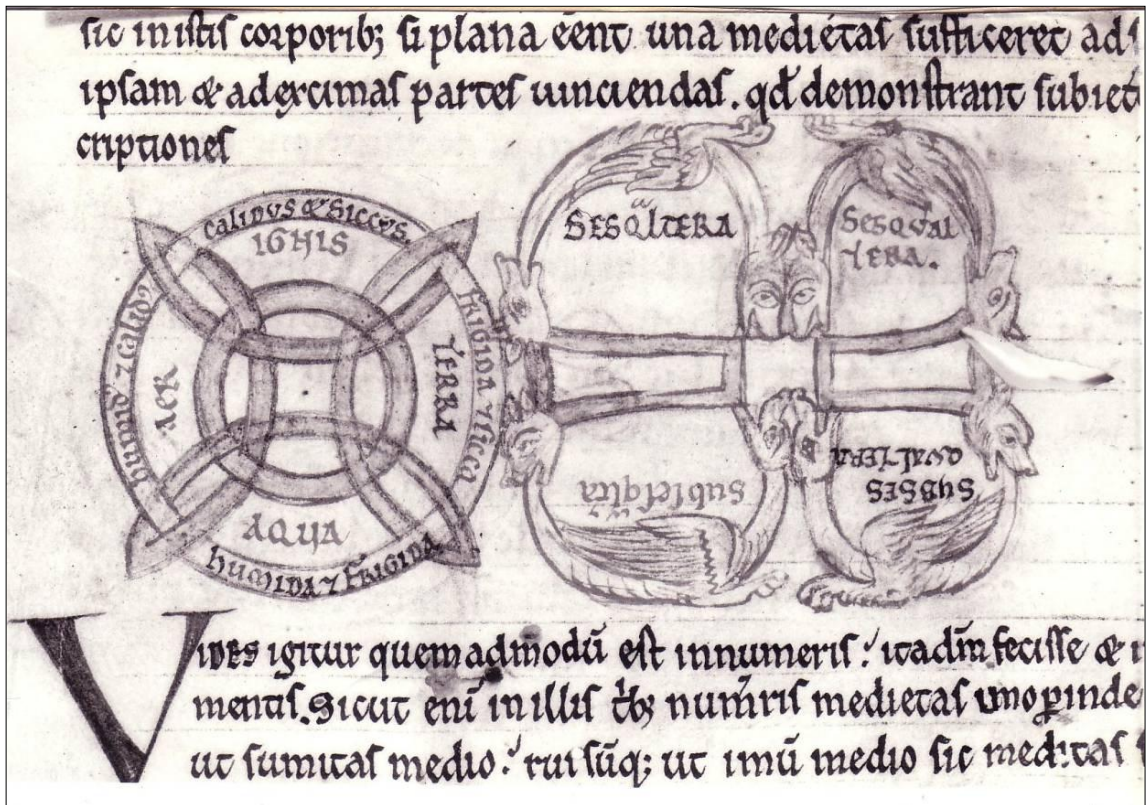 sic in istis corporib; si plana eent una medietas sufficeret ad
ipsam & ad extimas partes vinciendas. qd demonstrant subiec
criptiones
CALIDUS & SICCUS
IGNIS
humid' 7 calid'
AER
FRIGIDA 7 sicca
TERRA
AQUA
HUMIDA 7 FRIGIDA
SESQLTERA
SESQUAL
TERA.
subsesqlta
SUBSES
QUALTERA
VIDES igitur quemadmodū est in numeris. ita dm̄ fecisse &
mentis. Sicut enī in illis tb; num̄ris medietas uno pinde
ut sumitas medio. rursūq; ut imū medio sic medietas